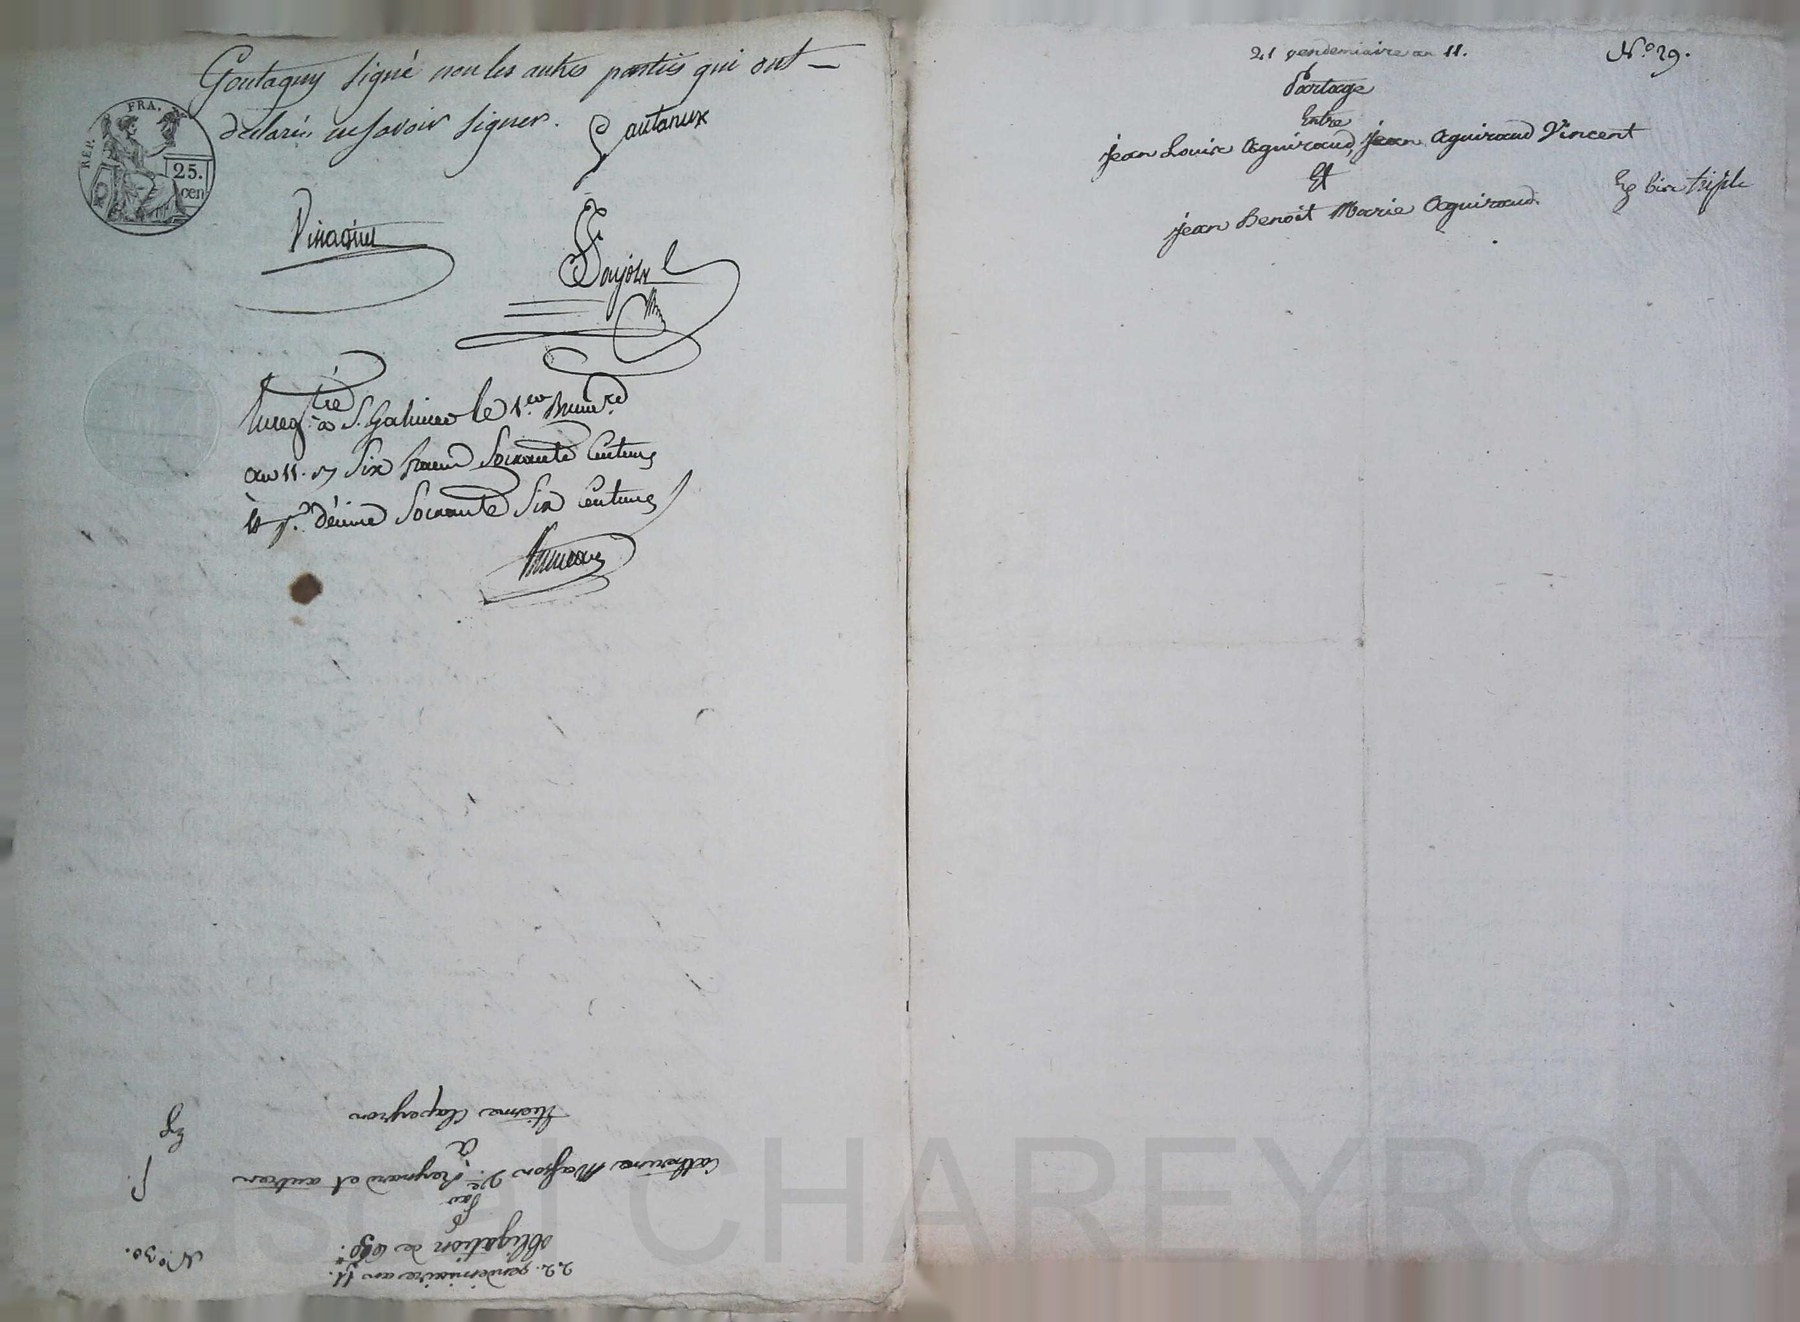 Goutagny signé non les autres parties qui ont
declaré ne savoir signer.
REP. FRA.
25.
cen
enregtré à St. Galmier le 1er Brumre
an 11. Six francs soixante centimes
et pr. décime soixante six centimes
Etienne Clapeyron
Eg
à
Catherine Masson Ve. Reynard et autres
Par
obligation de
22. vendemiaire an 11.
N.o 30.
21 vendemiaire an 11.
N.o 29.
Partage
Entre
jean Louis Aguiraud, jean Aguiraud Vincent
Et
Eg bis triple
jean Benoît Marie Aguiraud
Pascal CHAREYRON